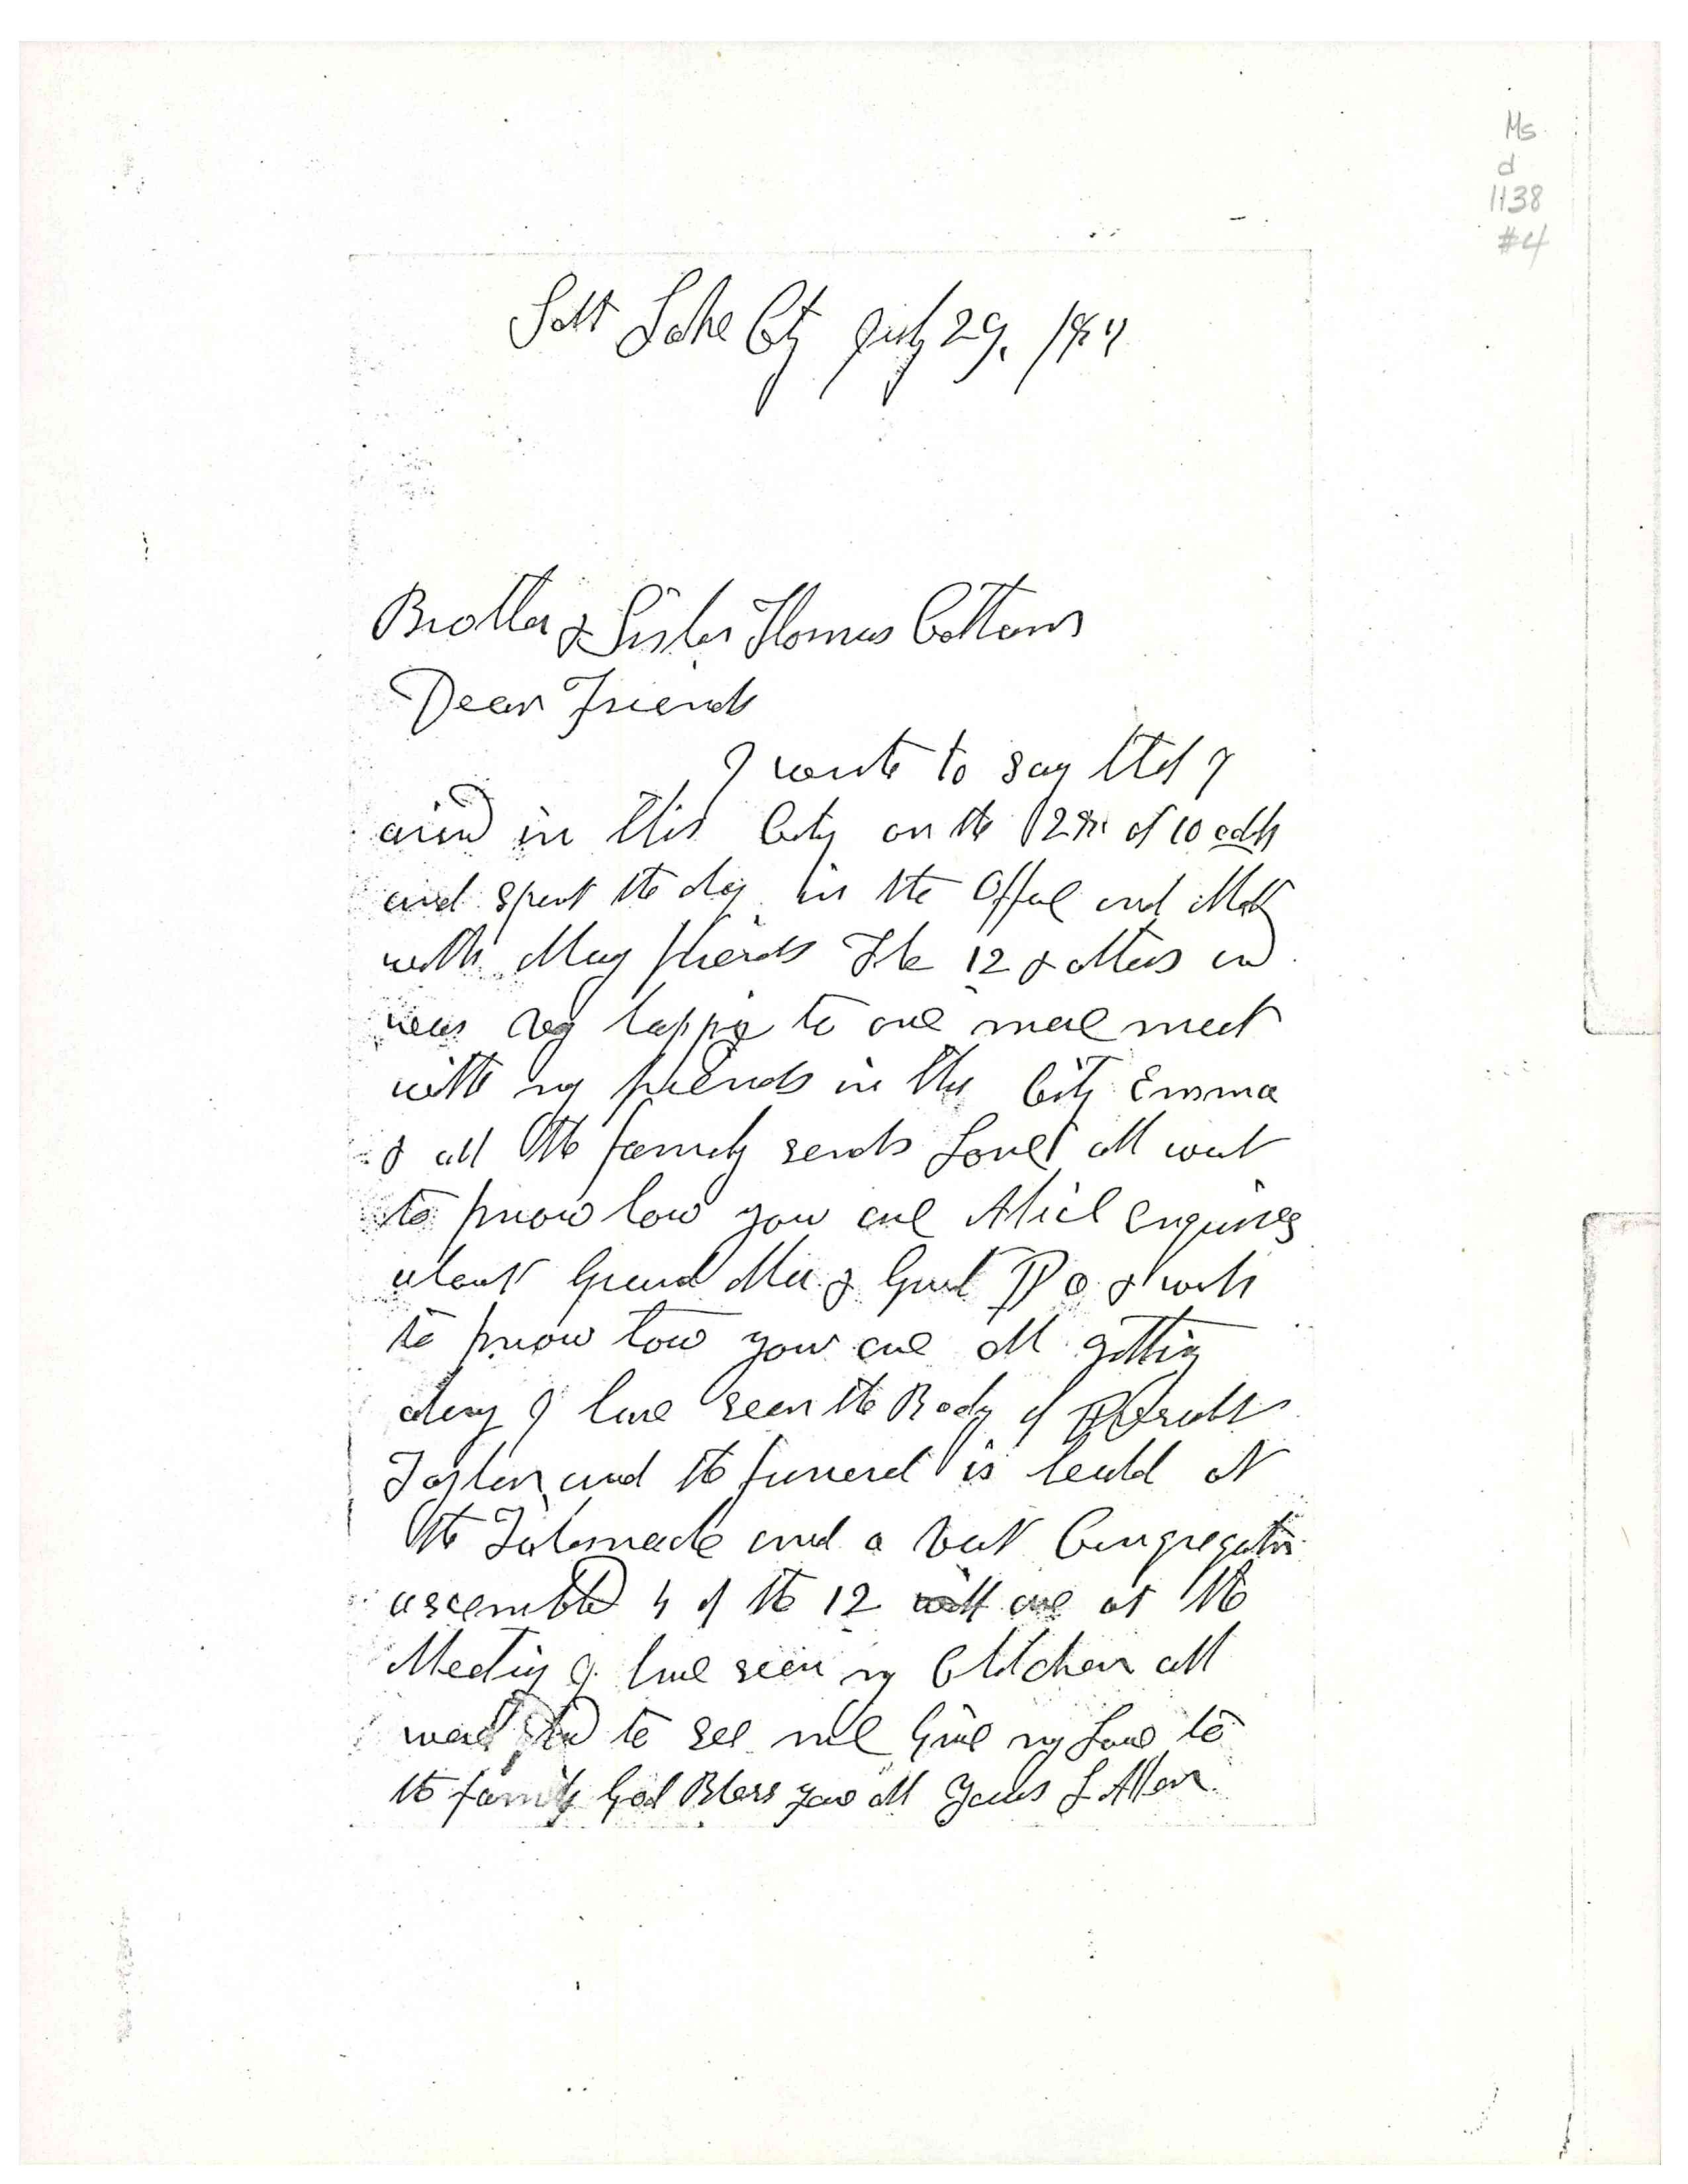 Ms
d
1138
#4
Salt Lake City July 29, 1887
Brother & Sister Thomas Cottam
Dear Friends
I write to say that I
arived in this City on the 28th of 10 oclk
and spent the day in the Office and Met
with Many friends The 12 & others and
was very happy to once more meet
with my friends in this City Emma
& all the family sends Love all want
to know how you are Alice enquires
about Grand Ma & Grand Pa & wants
to know how you are all getting
along I have seen the Body of President
Taylor and the funeral is held at
the Tabernacle and a vast Congregation
assembled 4 of the 12 are at the
Meeting I have seen my Children all
were glad to see me Give my Love to
the family God Bless you all Yours L Allen